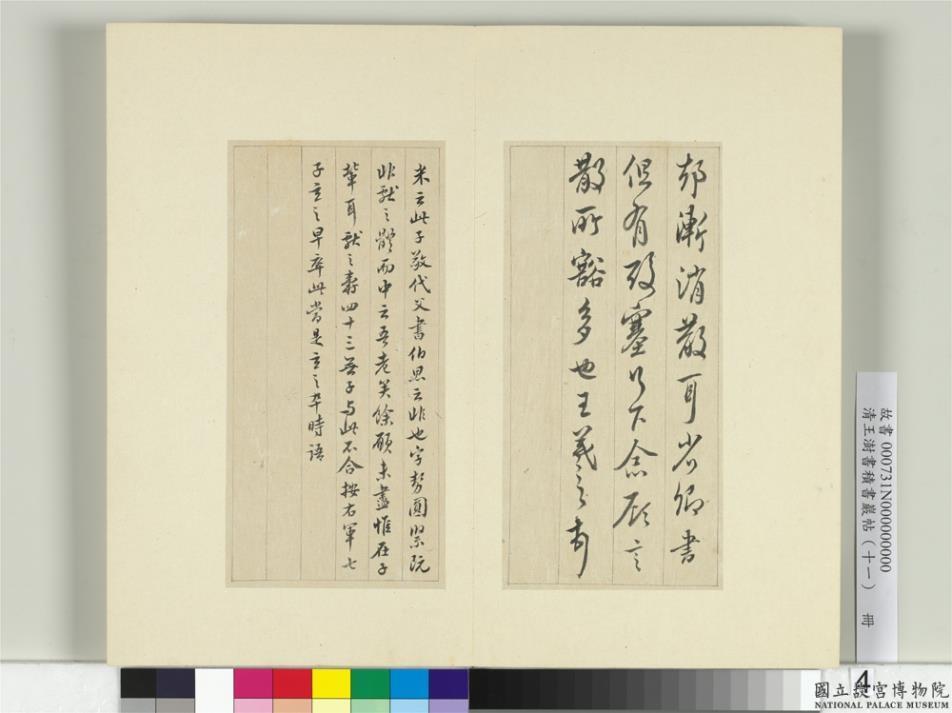 却漸消散耳省卿書
但有酸塞足下念顧言
散所豁多也王羲之頓
米云此子敬代父書伯思云非也字勢圓緊阮
非獻之體而中云吾老矣餘願未盡惟在子
輩耳獻之壽四十三無子與此不合按右軍七
子玄之早卒此當是玄之卒時語
故書 000731N000000000
清王澍書積書巖帖（十一） 冊
4
國立故宮博物院
NATIONAL PALACE MUSEUM